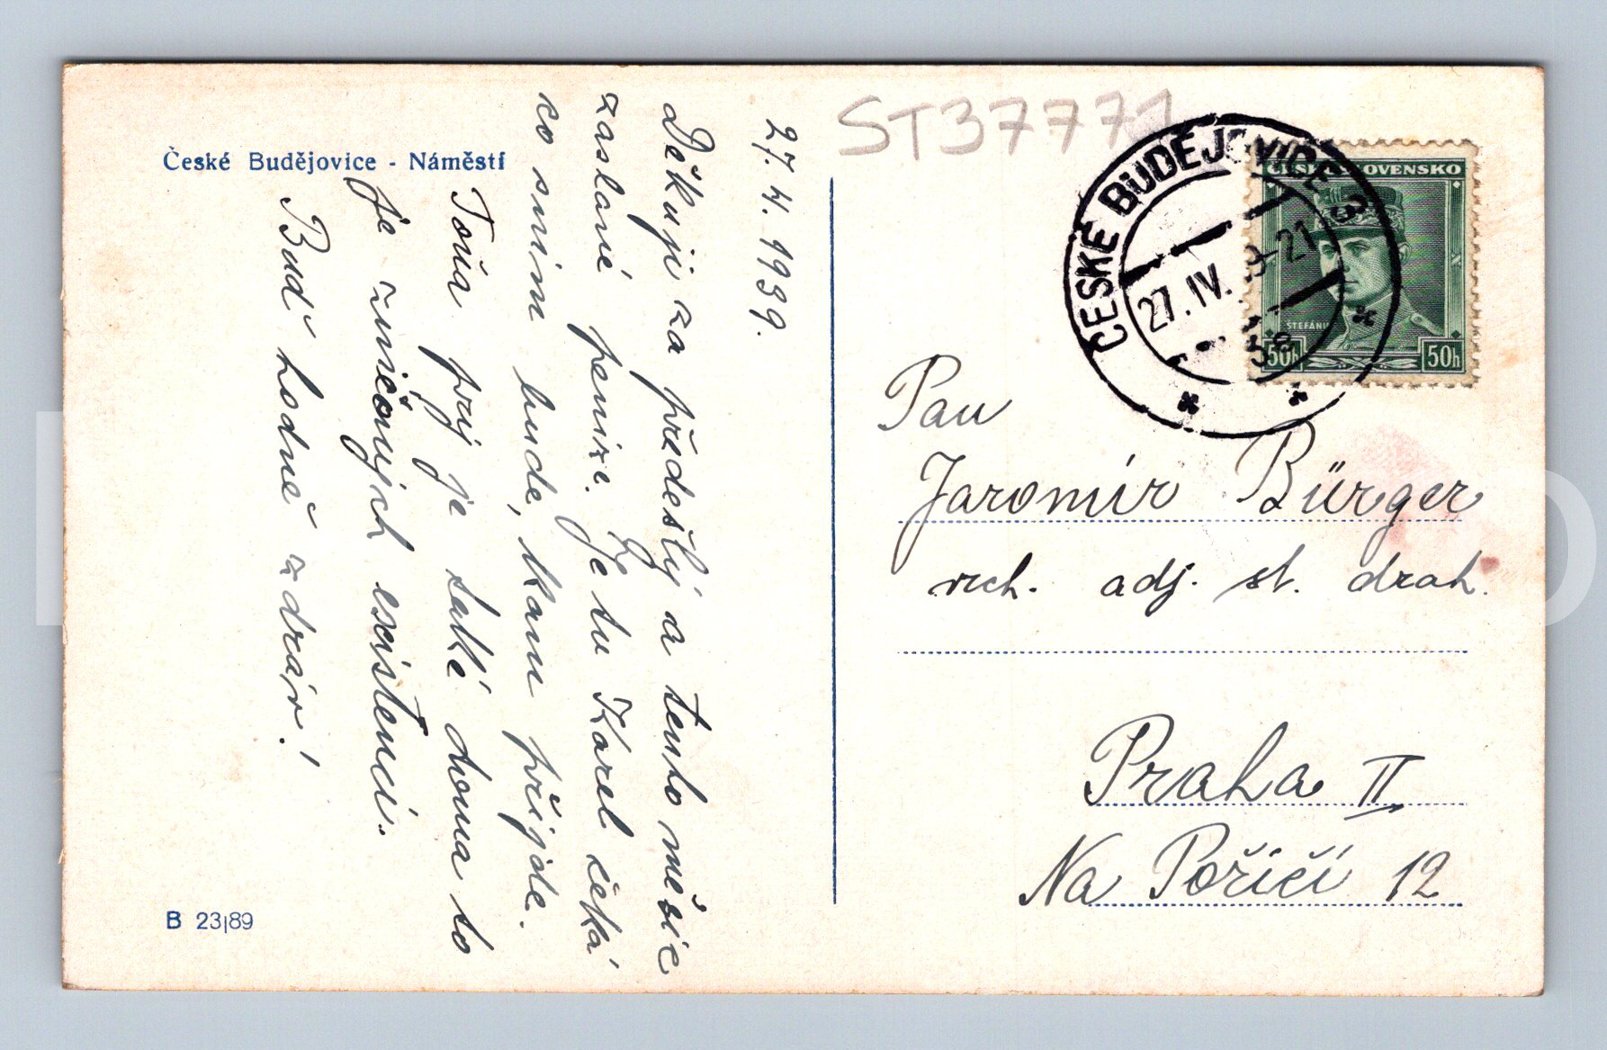 České Budějovice - Náměstí
27. IV. 1939.
Děkuji za předešlý a tento měsíc
zaslané peníze. Je tu Karel čeká
co s ním bude, kam přijde.
Toňa prý je také doma to
je zničených existencí.
Buď hodně zdráv!
B 23|89
ST37771
ČESKÉ BUDĚJOVICE 3
27. IV. 39-21
ČESKOSLOVENSKO
ŠTEFÁNIK
50h 50h
Pan
Jaromír Bürger
vrch. adj. st. drah.
Praha II
Na Poříčí 12